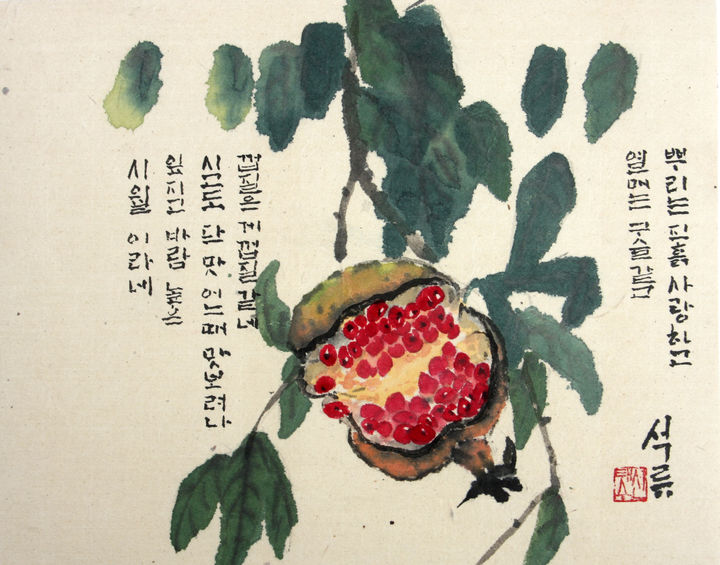 뿌리는 진흙 사랑하고
열매는 구슬같고
석류
껍질은 껍질 같네
단 맛 어느때 맛보려나
잎지고 바람 높은
시월 이라네